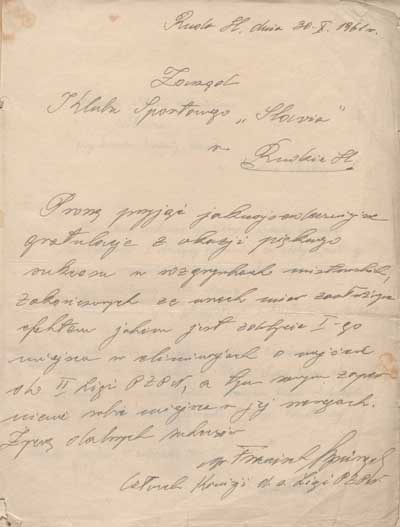 Ruda Śl. dnia 30.X.1961 r.
Zarząd
Klubu Sportowego „Slavia"
w Rudzie Śl.
Proszę przyjąć jak
gratulacje z okazji pięknego
sukcesu w rozgrywkach mistrzowskich,
zakończonych ze wszech miar
efektem jakim jest zdobycie I-go
miejsca w eliminacjach o wejście
do II Ligi PZPN, a tym samym zapew
nienie sobie miejsca w jej
Życzę dalszych sukcesów
mgr
Członek Komisji d.s. Ligi PZPN